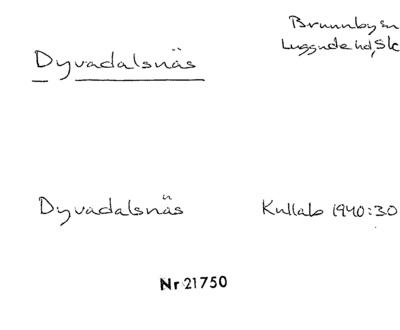 Dyvadalsnäs
Brunnby sn
Luggude hd, Sk
Dyvadalsnäs
Kullab 1940:30
Nr 21750